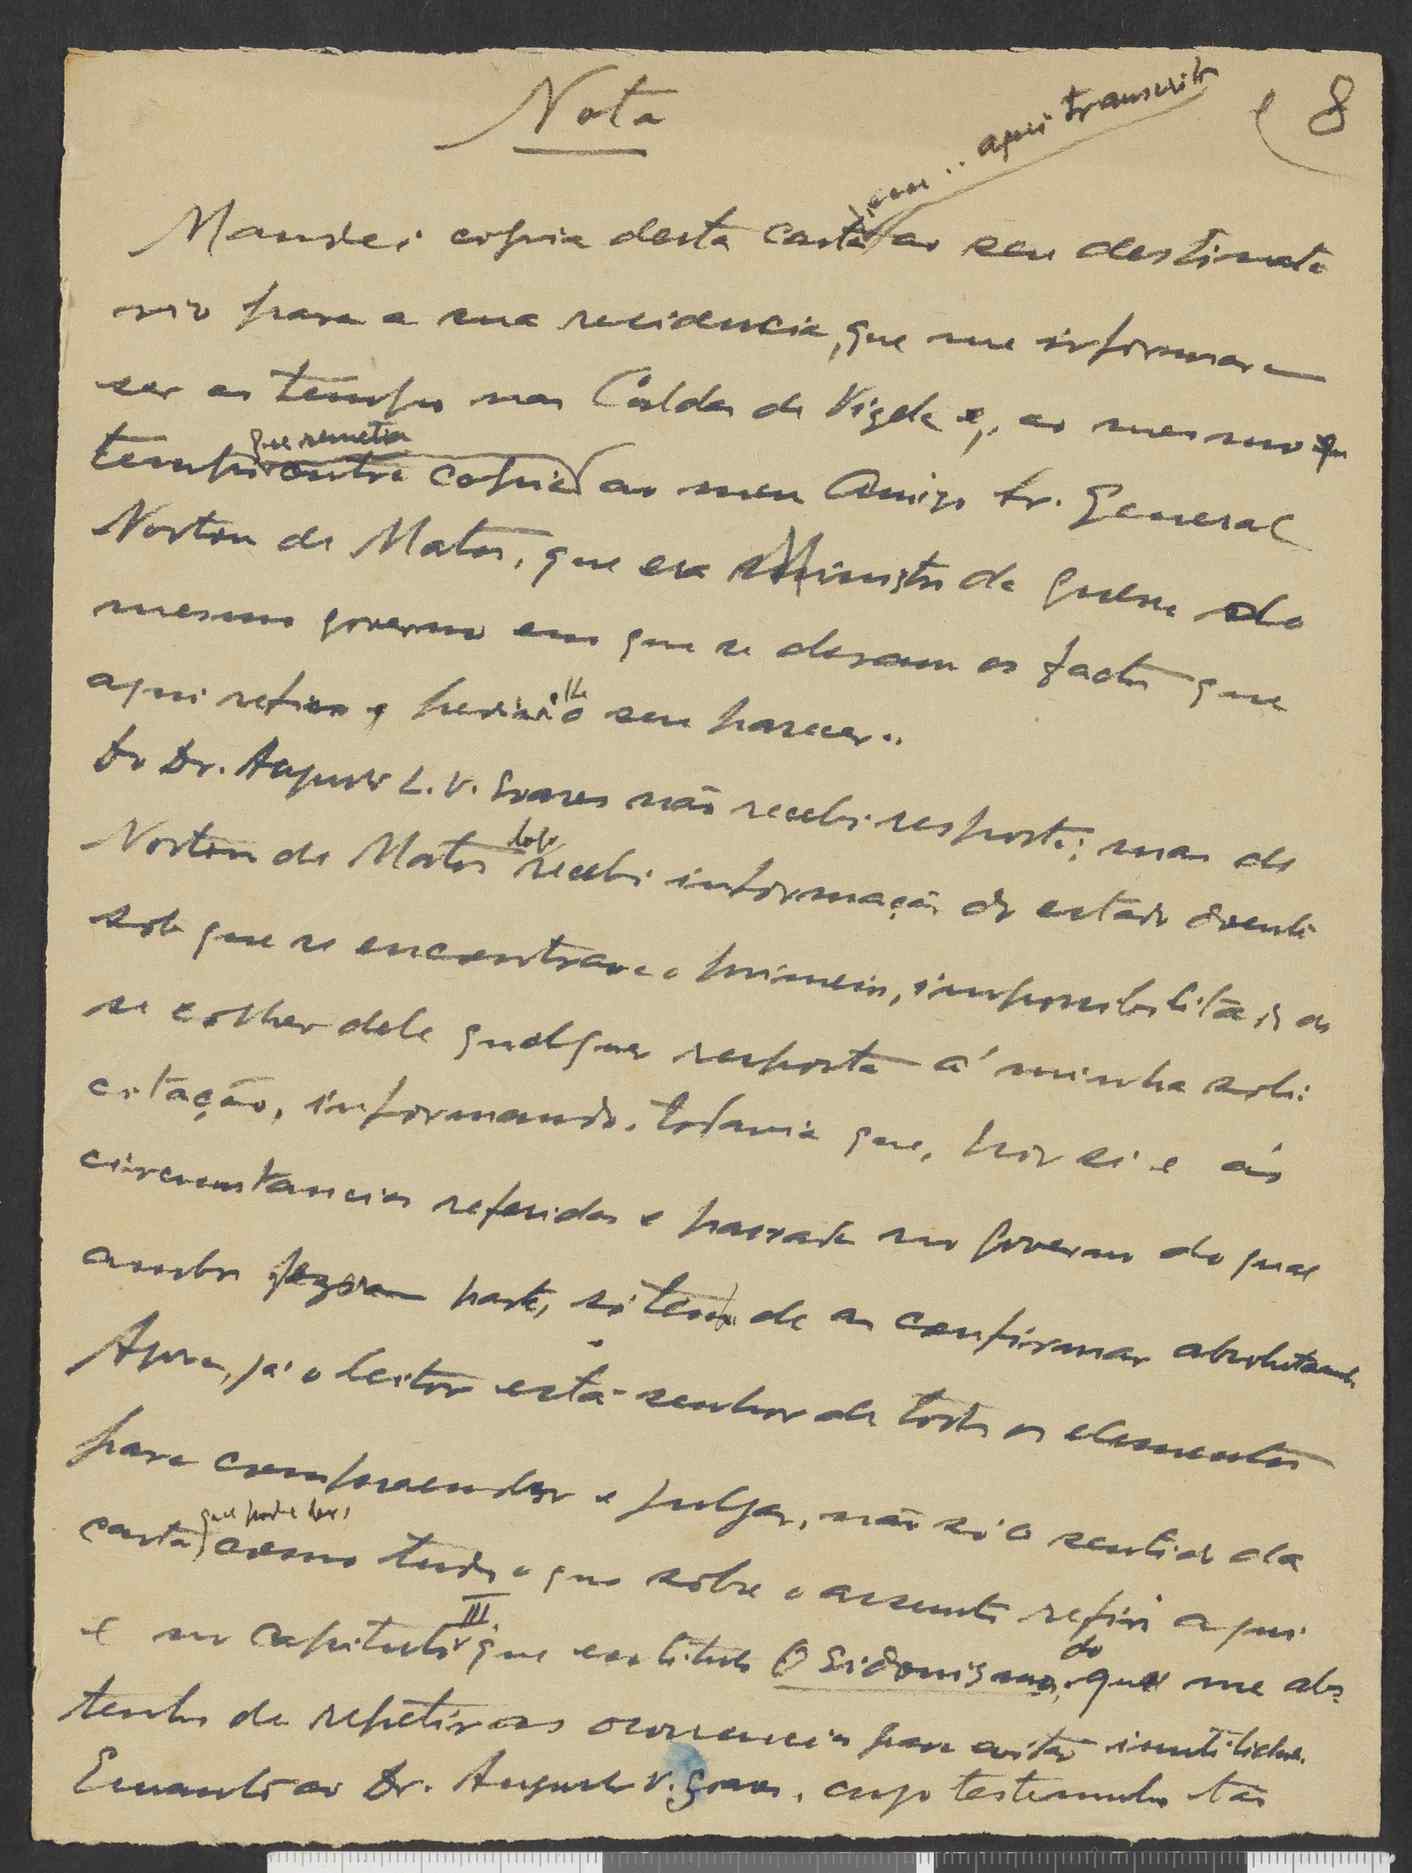 Nota
8
aqui transcrita
Mandei copia desta carta ao seu destinata
rio para a sua residencia, que me informaram
ser ao tempo nas Caldas de Vizela e, ao mesmo
tempo que remetia outra copia ao meu Amigo Sr. General
Norton de Matos, que era Ministro da guerra do
mesmo governo em que se deram os factos que
aqui refiro, pedi-lhe o seu parecer..
Do Dr. Augusto L. V. Soares não recebi resposta; mas de
Norton de Matos logo recebi informação do estado doente
sob que se encontrava o primeiro, impossibilitado de
se colher dele qualquer resposta á minha soli:
citação, informando, todavia que, por si e ás
circunstancias referidas e passadas no governo do qual
ambos fizeram parte, só tem de as confirmar absolutamente.
Agora, já o leitor está senhor de todos os elementos
para compreender e julgar, não só o sentido da
carta, como tudo o que sobre o assunto referi aqui
e no capitulo III, que intitulo O Sidonismo, que me abs
tenho de repetir as ocorrencias para evitar inutilidades.
Emquanto ao Dr. Augusto V. Soares, cujo testemunho tão